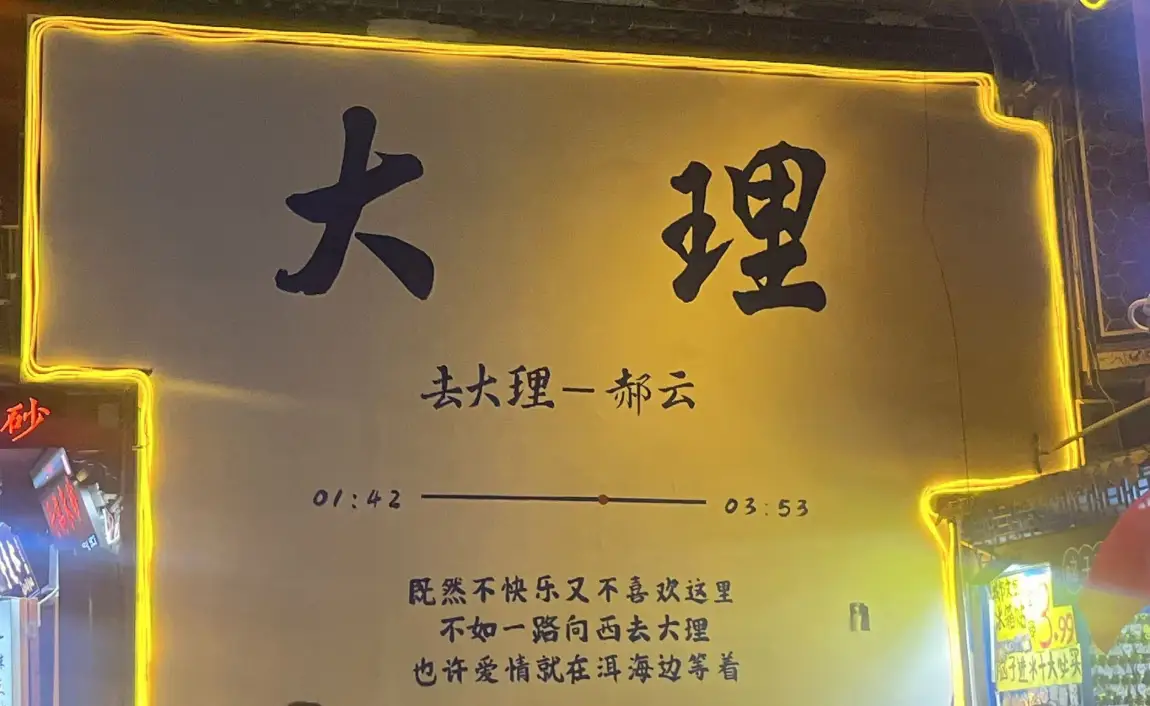 大理
去大理－郝云
01:42 03:53
既然不快乐又不喜欢这里
不如一路向西去大理
也许爱情就在洱海边等着
砂
3.99